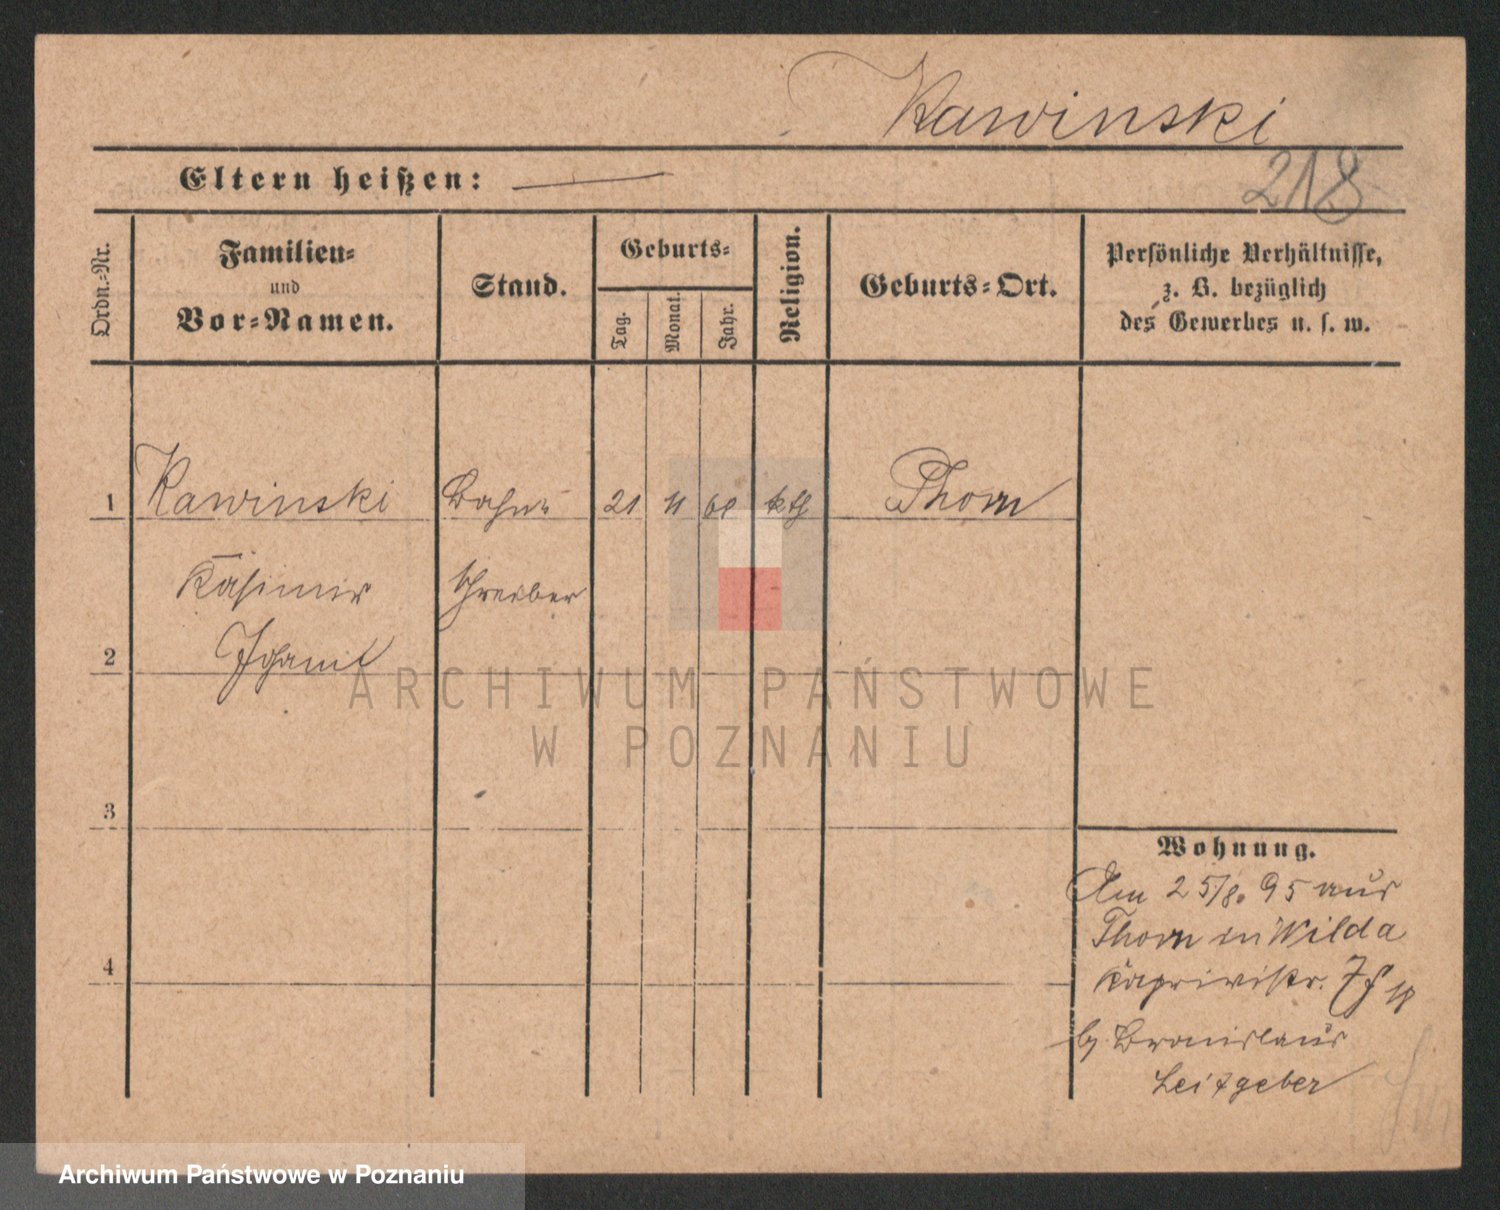 Kawinski
218
Eltern heißen:
Ordn.-Nr.
Familien-
und
Vor-Namen.
Stand.
Geburts-
Tag.
Monat.
Jahr.
Religion.
Geburts-Ort.
Persönliche Verhältnisse,
z. B. bezüglich
des Gewerbes u. s. w.
1 Kawinski Bahn- 21 11 kth Thorn
Kasimir schreiber
2
3
4
Wohnung.
Am 25/8. 95 aus
Thorn in Wilda
Kaprivistr. 7
b/ Bronislaus
Leitgeber
ARCHIWUM PAŃSTWOWE
W POZNANIU
Archiwum Państwowe w Poznaniu